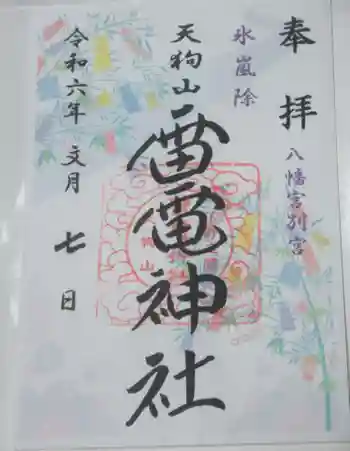 奉拝
八幡宮別宮
氷嵐除
天狗山
雷電神社
令和六年文月七日